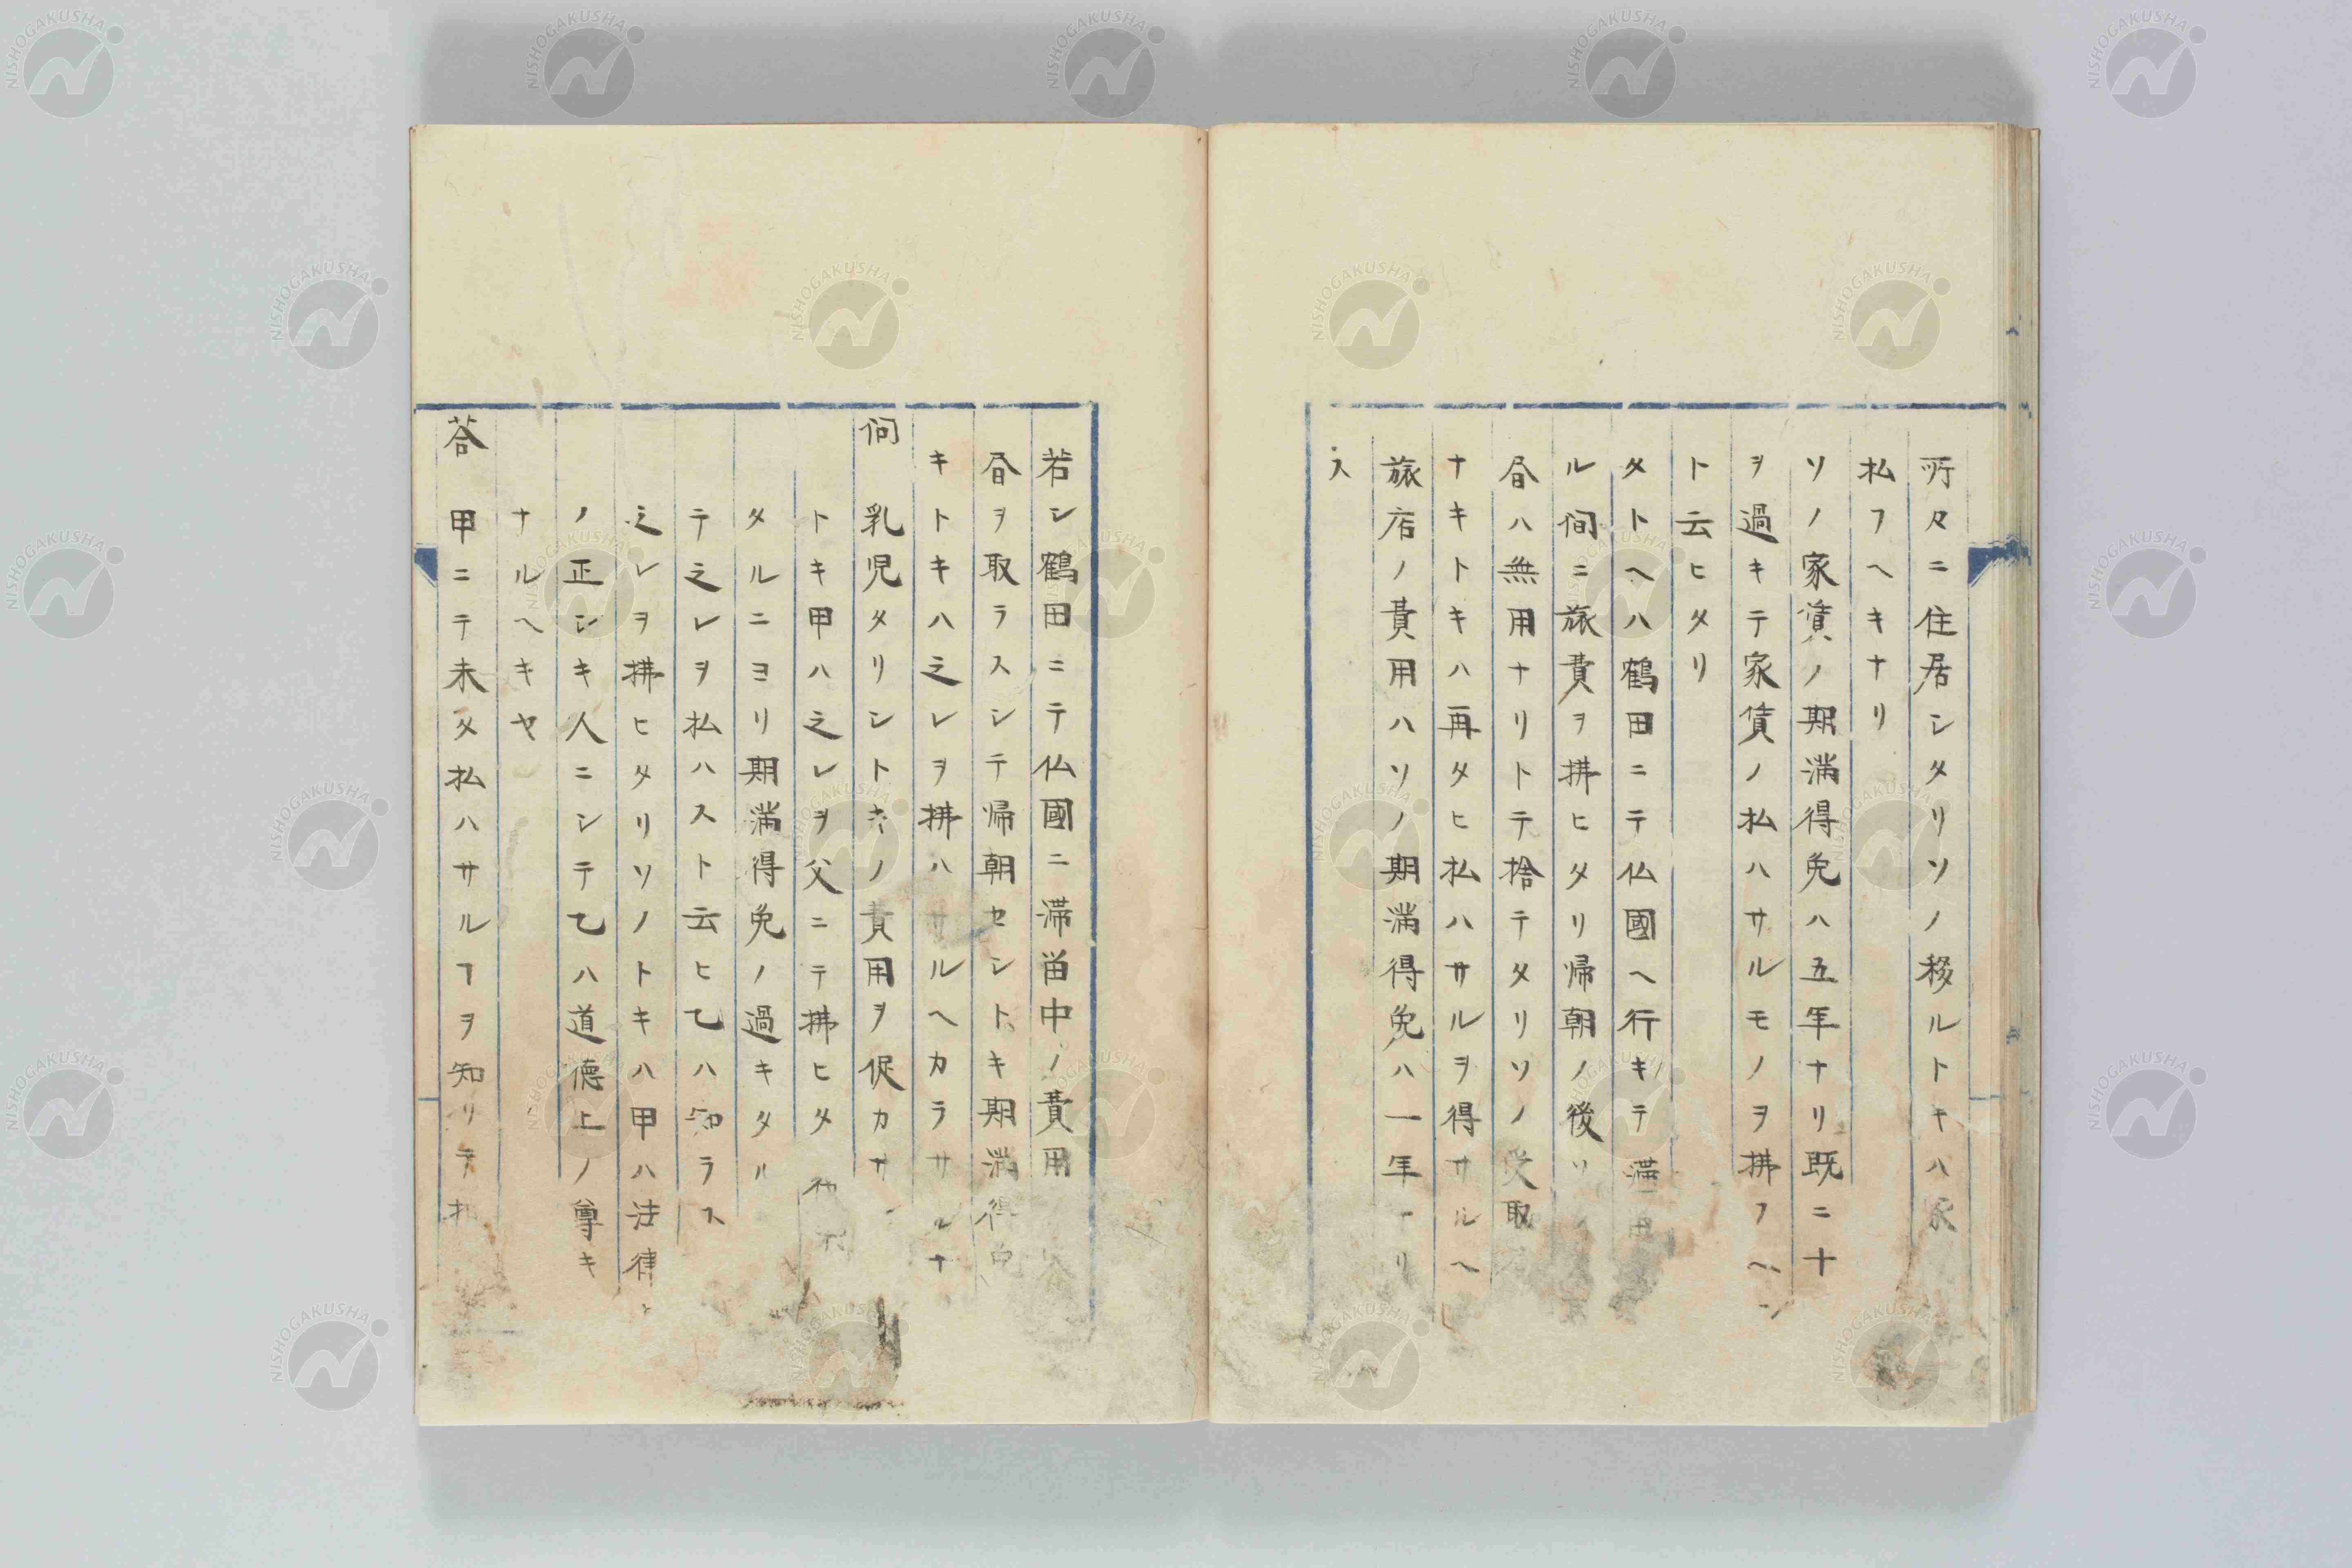 所々ニ住居シタリソノ移ルトキハ家
払フヘキナリ
ソノ家賃ノ期満得免ハ五年ナリ既ニ十
ヲ過キテ家賃ノ払ハサルモノヲ拂フヘシ
ト云ヒタリ
タトヘハ鶴田ニテ仏國ヘ行キテ滞
ル間ニ旅費ヲ拂ヒタリ帰朝ノ後ソ
届ハ無用ナリトテ捨テタリソノ受取
ナキトキハ再タヒ払ハサルヲ得サルヘ
旅店ノ費用ハソノ期満得免ハ一年ナリ
ス
若シ鶴田ニテ仏國ニ滞畄中ノ費用
届ヲ取ラスシテ帰朝セシトキ期満得免
キトキハ之レヲ拂ハサルヘカラサルナ
問 乳児タリシトキノ費用ヲ促カサ
トキ甲ハ之レヲ父ニテ拂ヒタ
タルニヨリ期満得免ノ過キタル
テ之レヲ払ハスト云ヒ乙ハ知ラス
之レヲ拂ヒタリソノトキハ甲ハ法律
ノ正シキ人ニシテ乙ハ道徳上ノ尊キ
ナルヘキヤ
答 甲ニテ未タ払ハサルヿヲ知リテ